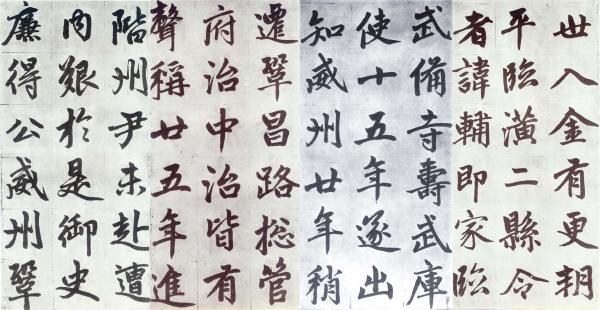 世入金有更朝
平臨潢二縣令
者諱輔即家臨
武備寺壽武庫
使十五年遂出
知威州廿年稍
遷鞏昌路総管
府治中治皆有
聲稱廿五年進
階州尹未赴遭
内艱於是御史
廉得公威州鞏